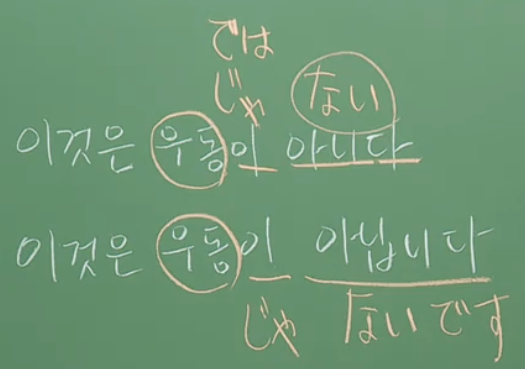 では
じゃ ない
이것은 우동이 아니다
이것은 우동이 아닙니다
じゃ ないです